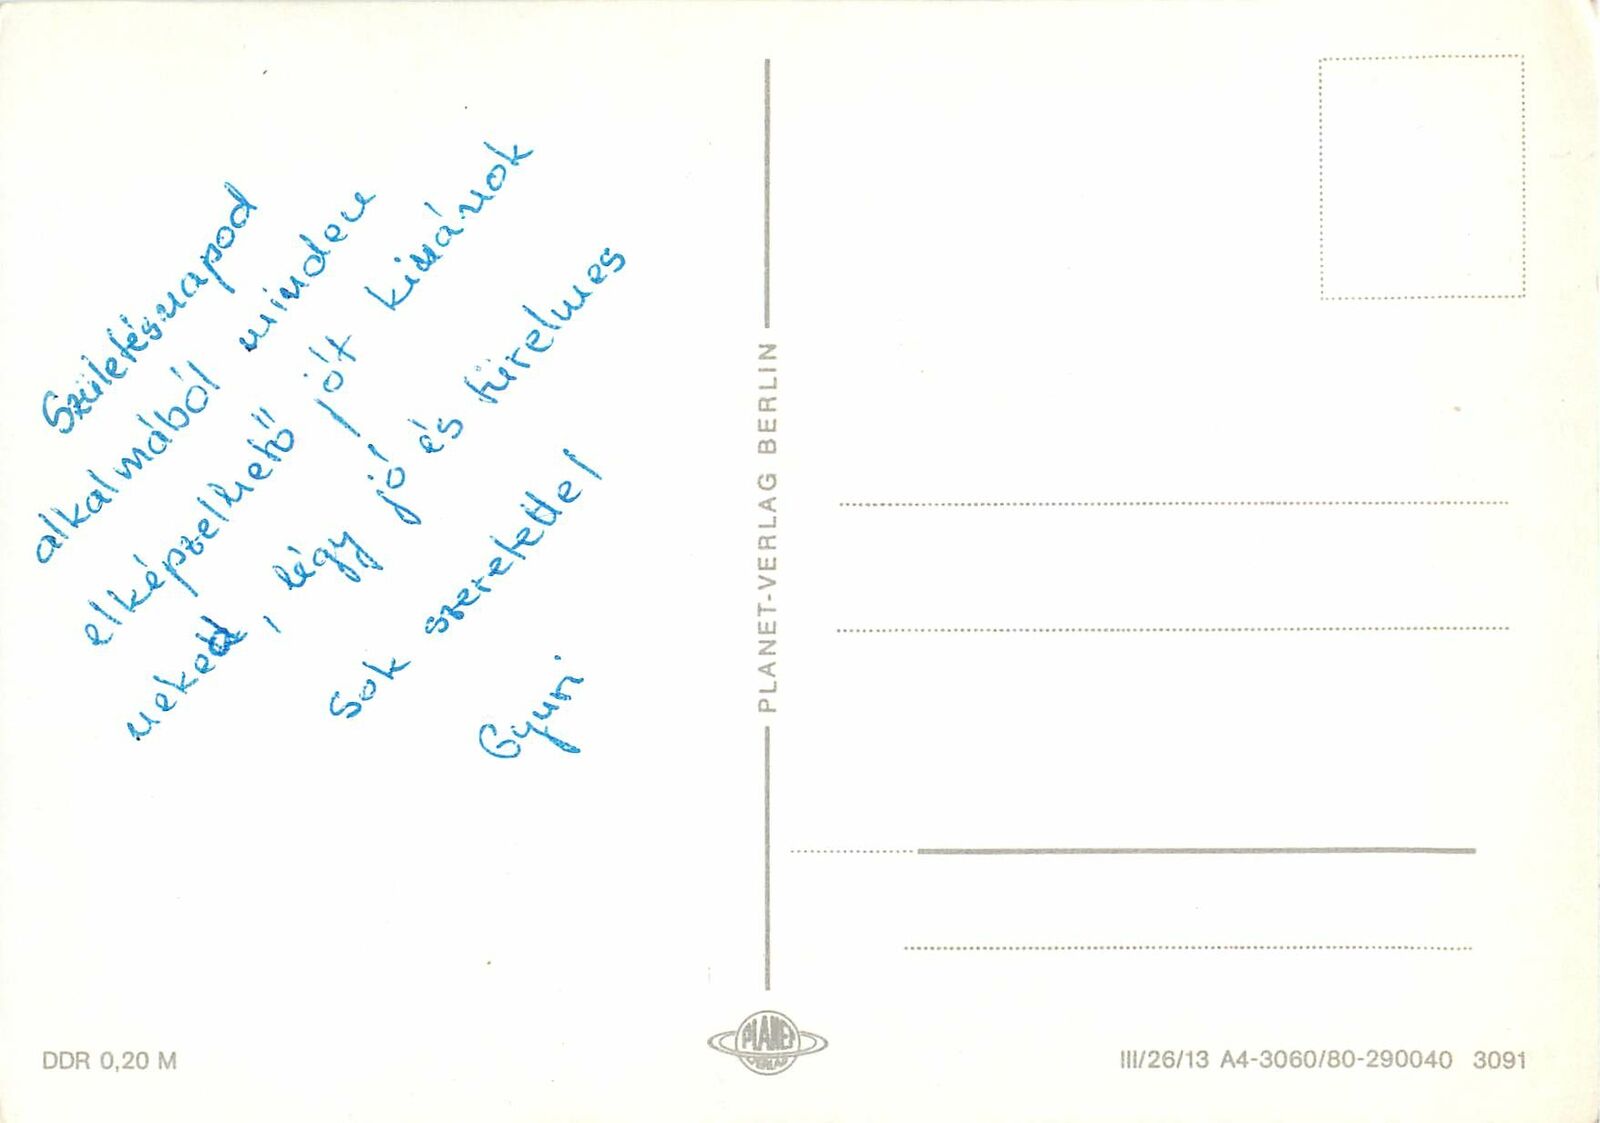 Születésnapod
alkalmából minden
elképzelhető jót kivánok
neked, légy jó és türelmes
Sok szeretettel
Gyuri
PLANET-VERLAG BERLIN
PLANET
VERLAG
DDR 0,20 M
III/26/13 A4-3060/80-290040 3091